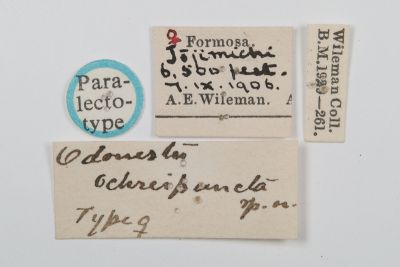 Para-
lecto-
type
♀ Formosa.
Tōjimichi
6,500 feet.
7.IX.1906.
A.E. Wileman. A
Wileman Coll.
B.M.1929—261.
Odonestis
ochreipuncta
sp. n.
Type ♀